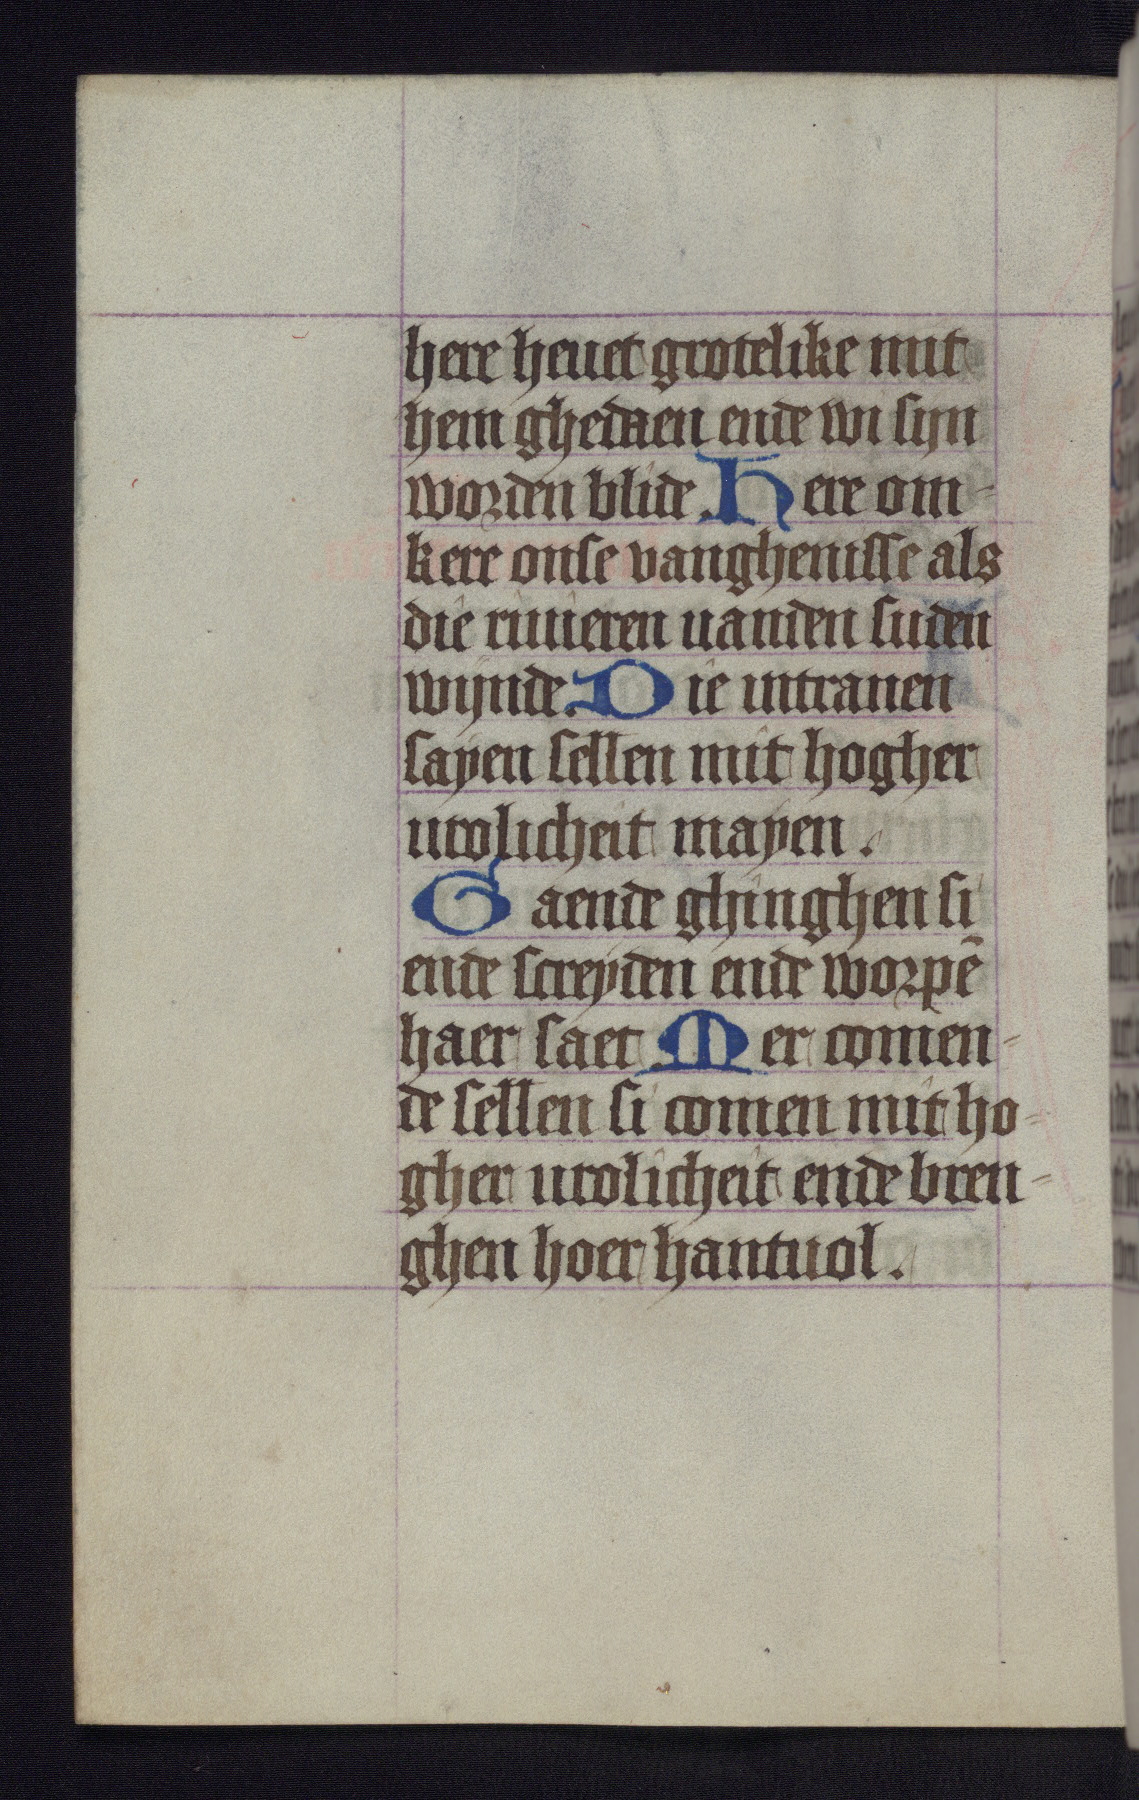 here heuet grotelike mit
hem ghedaen ende wi sijn
worden blide. Here om-
kere onse vanghenisse als
die riuieren uanden suden
wijnde. Die in tranen
sayen sellen mit hogher
urolicheit mayen.
Gaende ghinghen si
ende screyden ende worpē
haer saet. Mer comen-
de sellen si comen mit ho-
gher urolicheit ende bren-
ghen hoer hantuol.